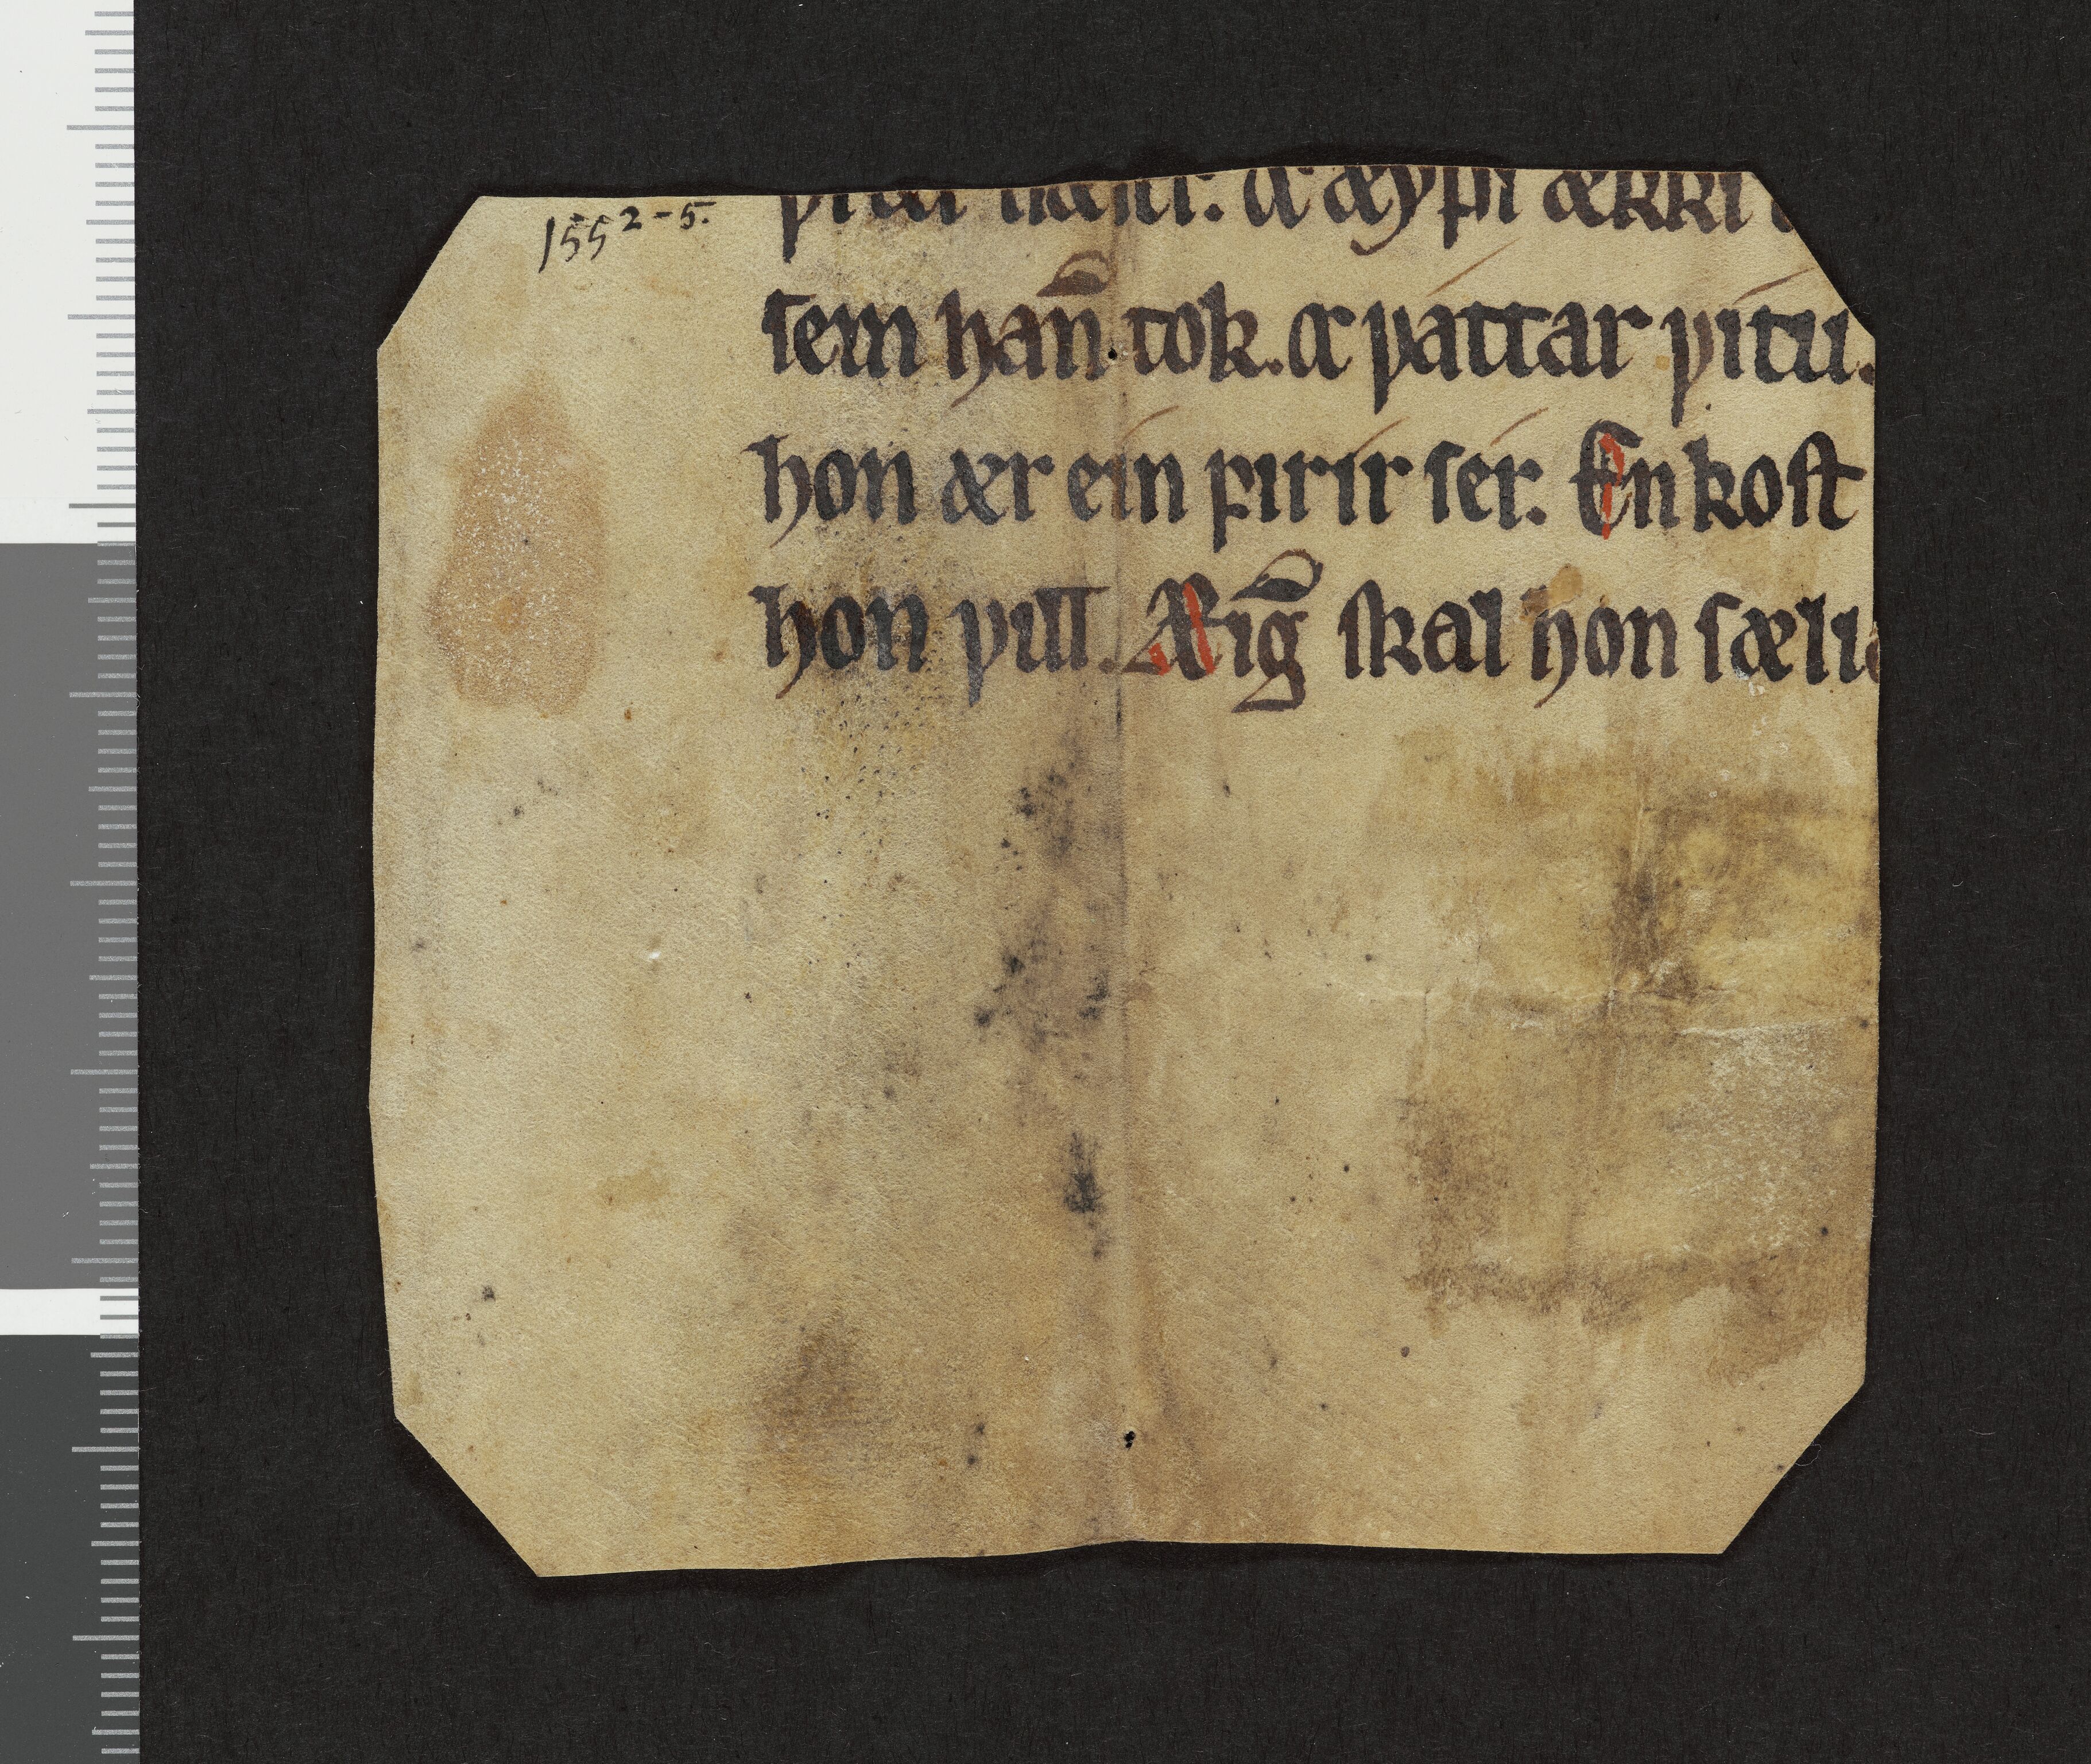 155 2-5.
oc ækki
ſem han̄ tok. oc váttar vítu.
hon ær eín firír ſér. En koſt
hon vill. Æig̅ ſkal hon ſælia